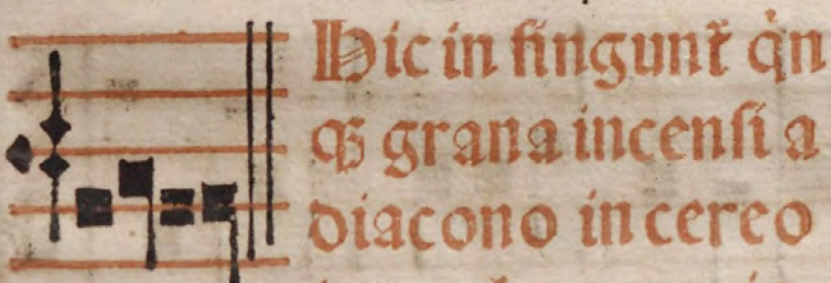 Hic in fingunt᷑ q̇n
qꝫ grana incensi a
diacono in cereo